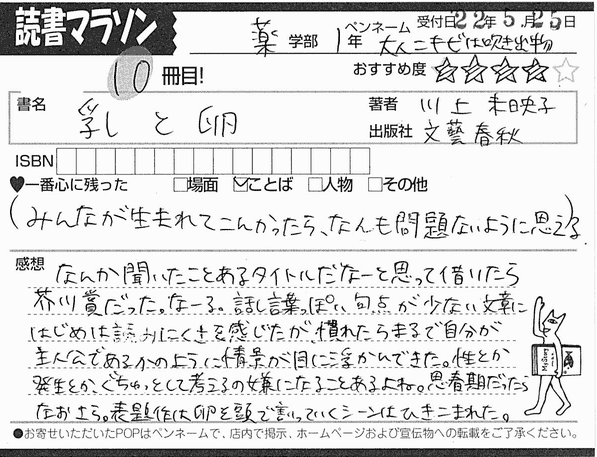 読書マラソン
薬 学部 1年
ペンネーム 受付日22年5月25日
大人ニキビは吹き出物
10冊目!
おすすめ度 ☆☆☆☆☆
書名 乳と卵
著者 川上未映子
出版社 文藝春秋
ISBN
♥一番心に残った □場面 ☑ことば □人物 □その他
(みんなが生まれてこんかったら、なんも問題ないように思える)
感想 なんか聞いたことあるタイトルだなーと思って借いたら
芥川賞だった。なーる。話し言葉っぽい句点が少ない文章に
はじめは読みにくさを感じたが、慣れたらまるで自分が
主人公であるかのように情景が目に浮かんできた。性とか
発生とか、ぐちゃっとして考えるの嫌になることあるよね。思春期だったら
なおさら。表題作は卵を頭で割っていくシーンはひきこまれた。
●お寄せいただいたPOPはペンネームで、店内で掲示、ホームページおよび宣伝物への転載をご了承ください。